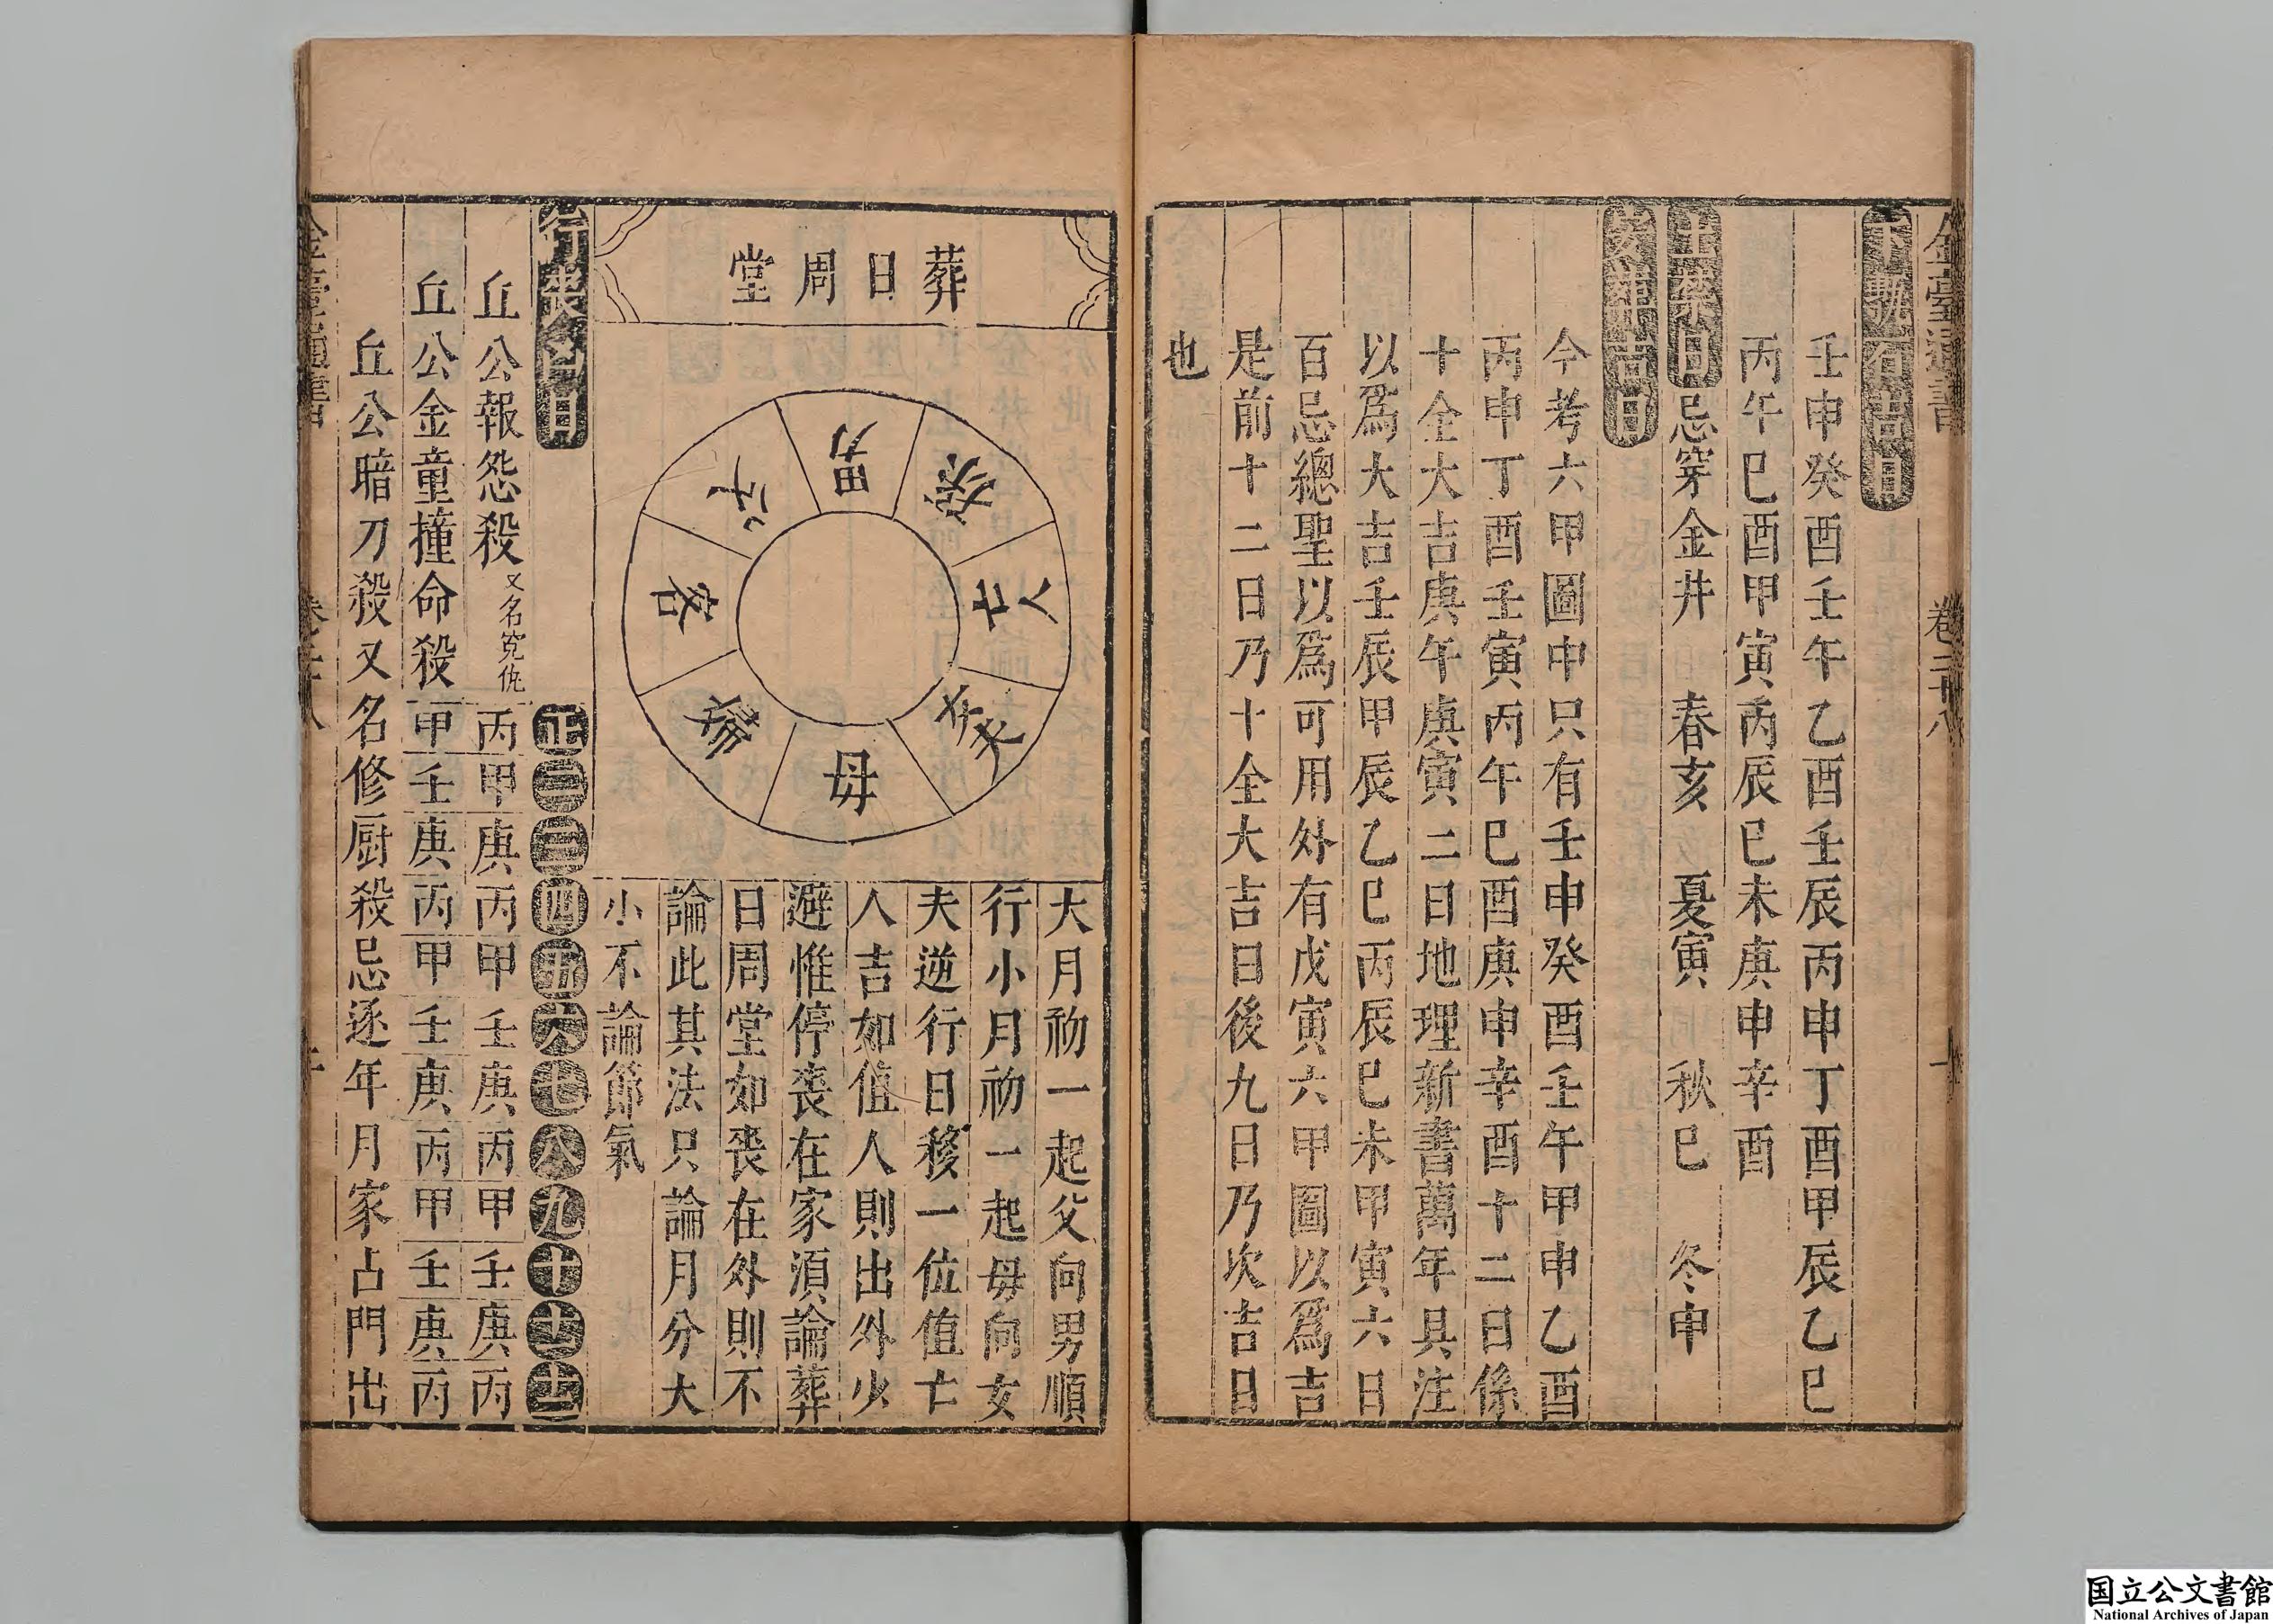 卷二十八
壬申癸酉壬午乙酉壬辰丙申丁酉甲辰乙巳
丙午己酉甲寅丙辰己未庚申辛酉
忌穿金井　春亥　夏寅　秋巳　冬申
今考六甲圖中只有壬申癸酉壬午甲申乙酉
丙申丁酉壬寅丙午己酉庚申辛酉十二日係
十全大吉庚午庚寅二日地理新書萬年具注
以爲大吉壬辰甲辰乙巳丙辰己未甲寅六日
百忌總聖以爲可用外有戊寅六甲圖以爲吉
是前十二日乃十全大吉日後九日乃次吉日
也
葬日周堂
男
孫
亡人
女夫
母
婦
客
大月初一起父向男順
行小月初一起母向女
夫逆行日移一位值亡
人吉如值人則出外少
避惟停喪在家須論葬
日周堂如喪在外則不
論此其法只論月分大
小不論節氣
行喪凶日　正二三四五六七八九十十一十二
丘公報怨殺又名冤仇　丙甲庚丙甲壬庚丙甲壬庚丙
丘公金童撞命殺　甲壬庚丙甲壬庚丙甲壬庚丙
丘公暗刀殺又名修厨殺忌逐年月家占門出
国立公文書館
National Archives of Japan